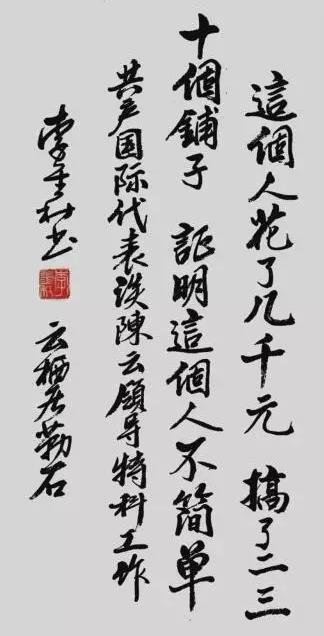 這個人花了几千元 搞了二三
十個鋪子 証明這個人不簡单
共产国际代表谈陳云領导特科工作
李重秋书
云栖居勒石